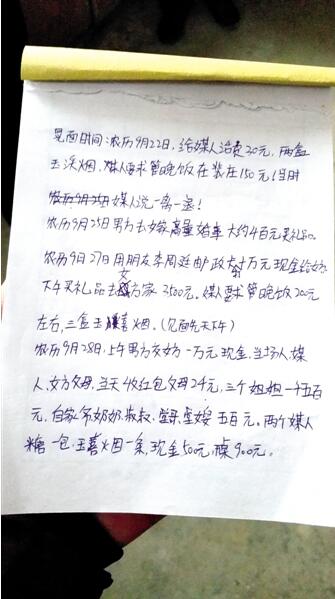 见面时间:农历9月22日,给媒人治费30元,两盒
玉溪烟,媒人要求管晚饭在 150元!当时
媒人说一离一退!
农历9月25日男方去女家商量婚事大约4百元买礼品。
农历9月27日用朋友李周 邮政 万元现金给
下午买礼品去女方家3500元。媒人要求管晚饭200元
左右,三盒玉喜烟。(见面先天下午)
农历9月28日,上午男方交女方一万元现金,当场人,媒
人,女方父母,当天收红包父母24元,三个姐姐一千五百
元,自家爷奶奶,叔叔, 五百元。两个媒人
糖一包,玉喜烟一条,现金50元,桌900元。